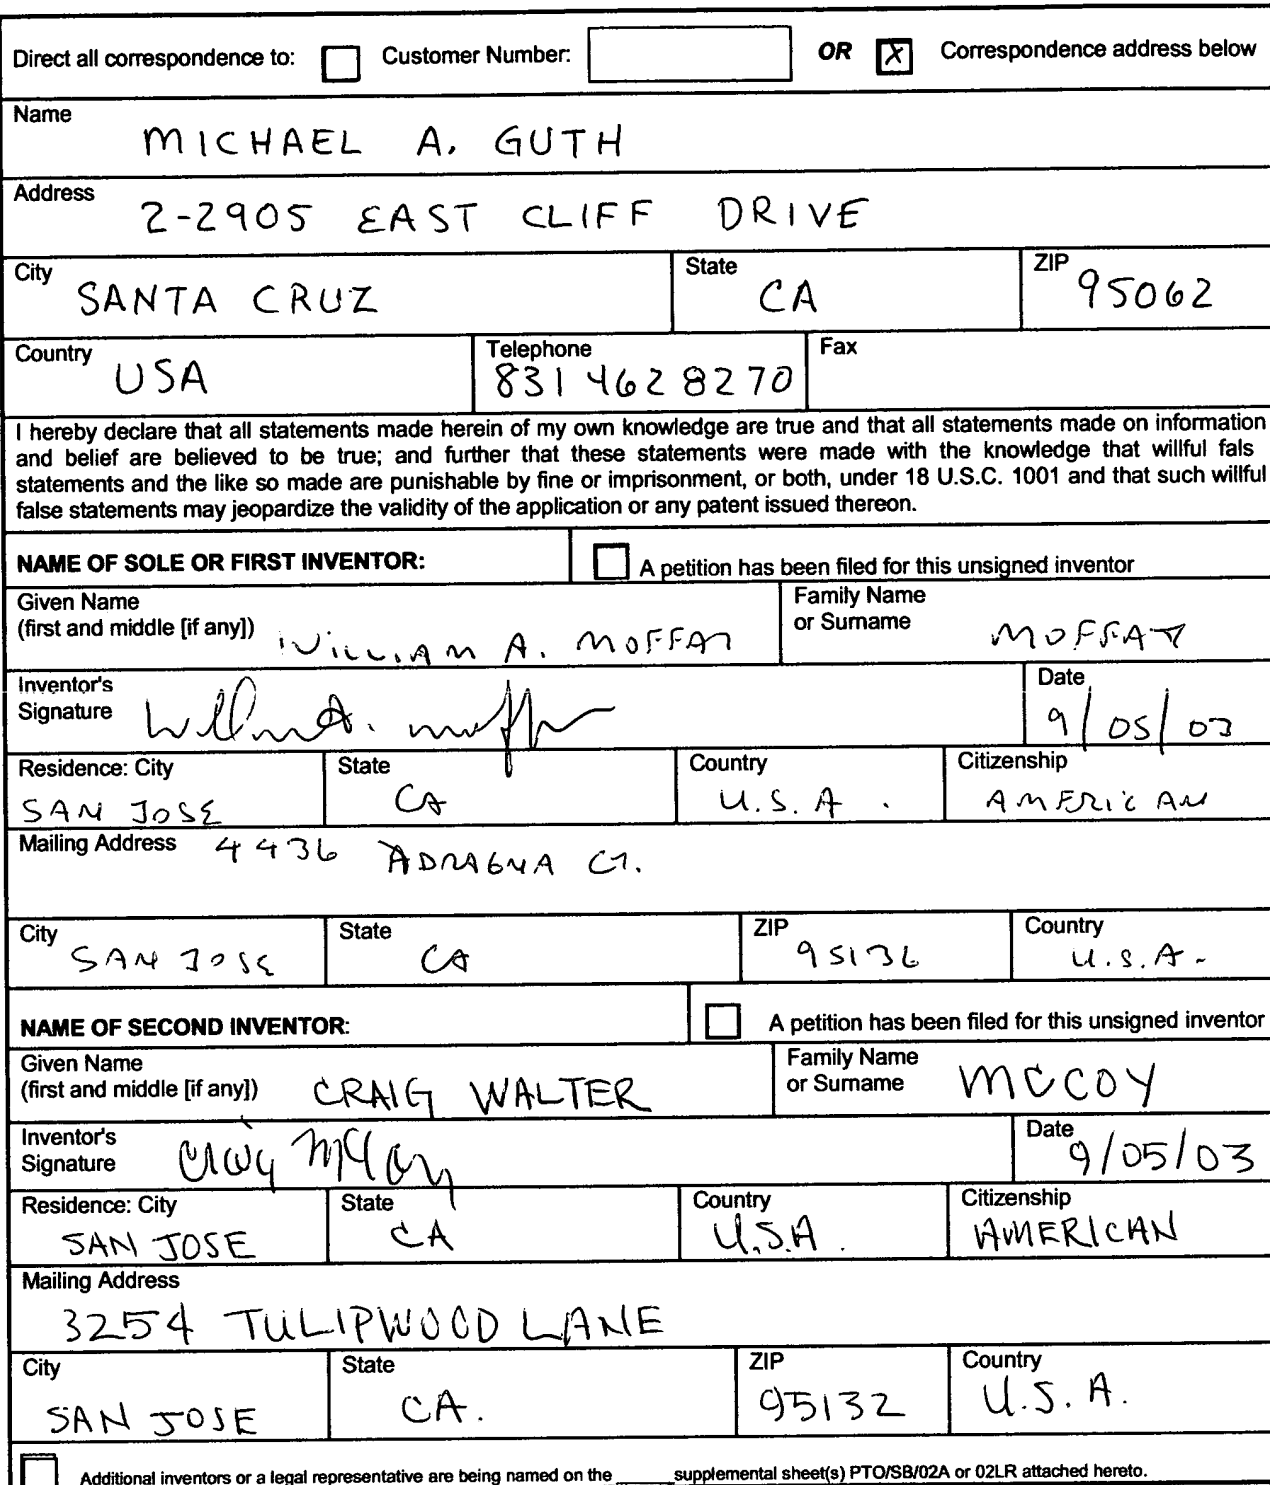 Direct all correspondence to: Customer Number: OR X Correspondence address below
Name
MICHAEL A. GUTH
Address
2-2905 EAST CLIFF DRIVE
City SANTA CRUZ State CA ZIP 95062
Country USA Telephone 831 462 8270 Fax
I hereby declare that all statements made herein of my own knowledge are true and that all statements made on information
and belief are believed to be true; and further that these statements were made with the knowledge that willful fals
statements and the like so made are punishable by fine or imprisonment, or both, under 18 U.S.C. 1001 and that such willful
false statements may jeopardize the validity of the application or any patent issued thereon.
NAME OF SOLE OR FIRST INVENTOR: A petition has been filed for this unsigned inventor
Given Name
(first and middle [if any]) WILLIAM A. MOFFAT
Family Name
or Surname MOFFAT
Inventor's
Signature William A. Moffat
Date
9/05/03
Residence: City State Country Citizenship
SAN JOSE CA U.S.A. AMERICAN
Mailing Address 4436 ADRAGNA CT.
City SAN JOSE State CA ZIP 95136 Country U.S.A.
NAME OF SECOND INVENTOR: A petition has been filed for this unsigned inventor
Given Name
(first and middle [if any]) CRAIG WALTER
Family Name
or Surname MCCOY
Inventor's
Signature Craig McCoy
Date 9/05/03
Residence: City State Country Citizenship
SAN JOSE CA U.S.A. AMERICAN
Mailing Address
3254 TULIPWOOD LANE
City State ZIP Country
SAN JOSE CA. 95132 U.S.A.
Additional inventors or a legal representative are being named on the ______supplemental sheet(s) PTO/SB/02A or 02LR attached hereto.